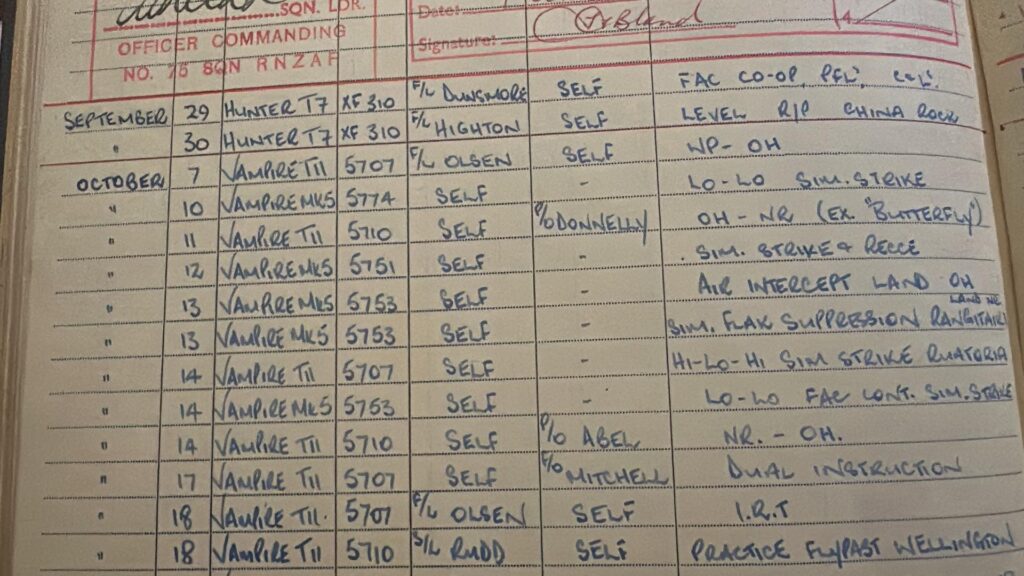 SQN. LDR.
OFFICER COMMANDING
NO. 75 SQN RNZAF
Date:
Signature:
SEPTEMBER 29 HUNTER T7 XF 310 F/L DUNSMORE SELF FAC CO-OP, PFL'
" 30 HUNTER T7 XF 310 F/L HIGHTON SELF LEVEL R/P CHINA ROCK
OCTOBER 7 VAMPIRE T11 5707 F/L OLSEN SELF WP - OH
" 10 VAMPIRE MK5 5774 SELF - LO-LO SIM. STRIKE
" 11 VAMPIRE T11 5710 SELF P/O DONNELLY OH - NR (EX. "BUTTERFLY")
" 12 VAMPIRE MK5 5751 SELF - SIM. STRIKE & RECCE
" 13 VAMPIRE MK5 5753 SELF - AIR INTERCEPT LAND OH
" 13 VAMPIRE MK5 5753 SELF - SIM. FLAK SUPPRESSION LAND NR
" 14 VAMPIRE T11 5707 SELF - HI-LO-HI SIM STRIKE RUATORIA
" 14 VAMPIRE MK5 5753 SELF - LO-LO FAC CONT. SIM. STRIKE
" 14 VAMPIRE T11 5710 SELF P/O ABEL NR. - OH.
" 17 VAMPIRE T11 5707 SELF F/O MITCHELL DUAL INSTRUCTION
" 18 VAMPIRE T11. 5707 F/L OLSEN SELF I.R.T
" 18 VAMPIRE T11 5710 S/L RUDD SELF PRACTICE FLYPAST WELLINGTON